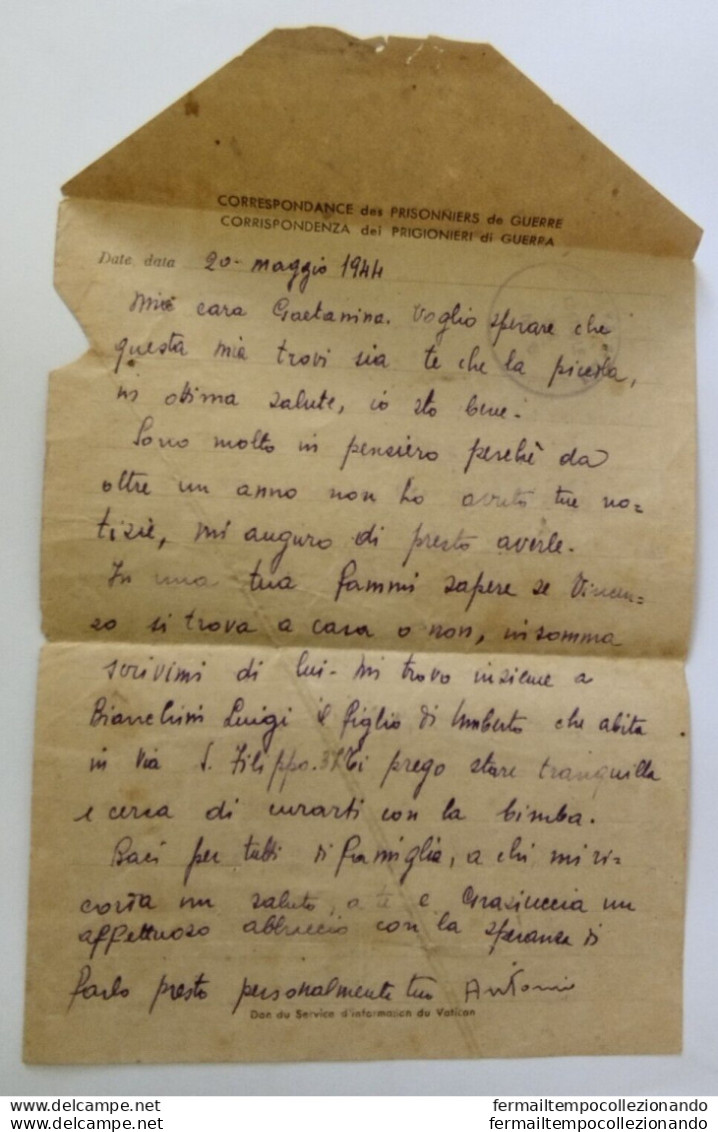 CORRESPONDANCE des PRISONNIERS de GUERRE
CORRISPONDENZA dei PRIGIONIERI di GUERRA
Date data 20- maggio 1944
Mia cara Gaetanina. Voglio sperare che
questa mia trovi sia te che la piccola,
in ottima salute, io sto bene.
Sono molto in pensiero perchè da
oltre un anno non ho avuto tue no=
tizie, mi auguro di presto averle.
In una tua fammi sapere se Vincen=
zo si trova a casa o non, insomma
scrivimi di lui- Mi trovo insieme a
Bianchini Luigi il figlio di Umberto che abita
in Via S. Filippo. 37. Ti prego stare tranquilla
e cerca di curarti con la bimba.
Baci per tutti di famiglia, a chi mi ri=
corda un saluto, a te e Graziuccia un
affettuoso abbraccio con la speranza di
farlo presto personalmente tuo Antonio
Don du Service d'information du Vatican
fermailtempocollezionando.com
fermailtempocollezionando
fermailtempocollezionando.com
fermailtempocollezionando